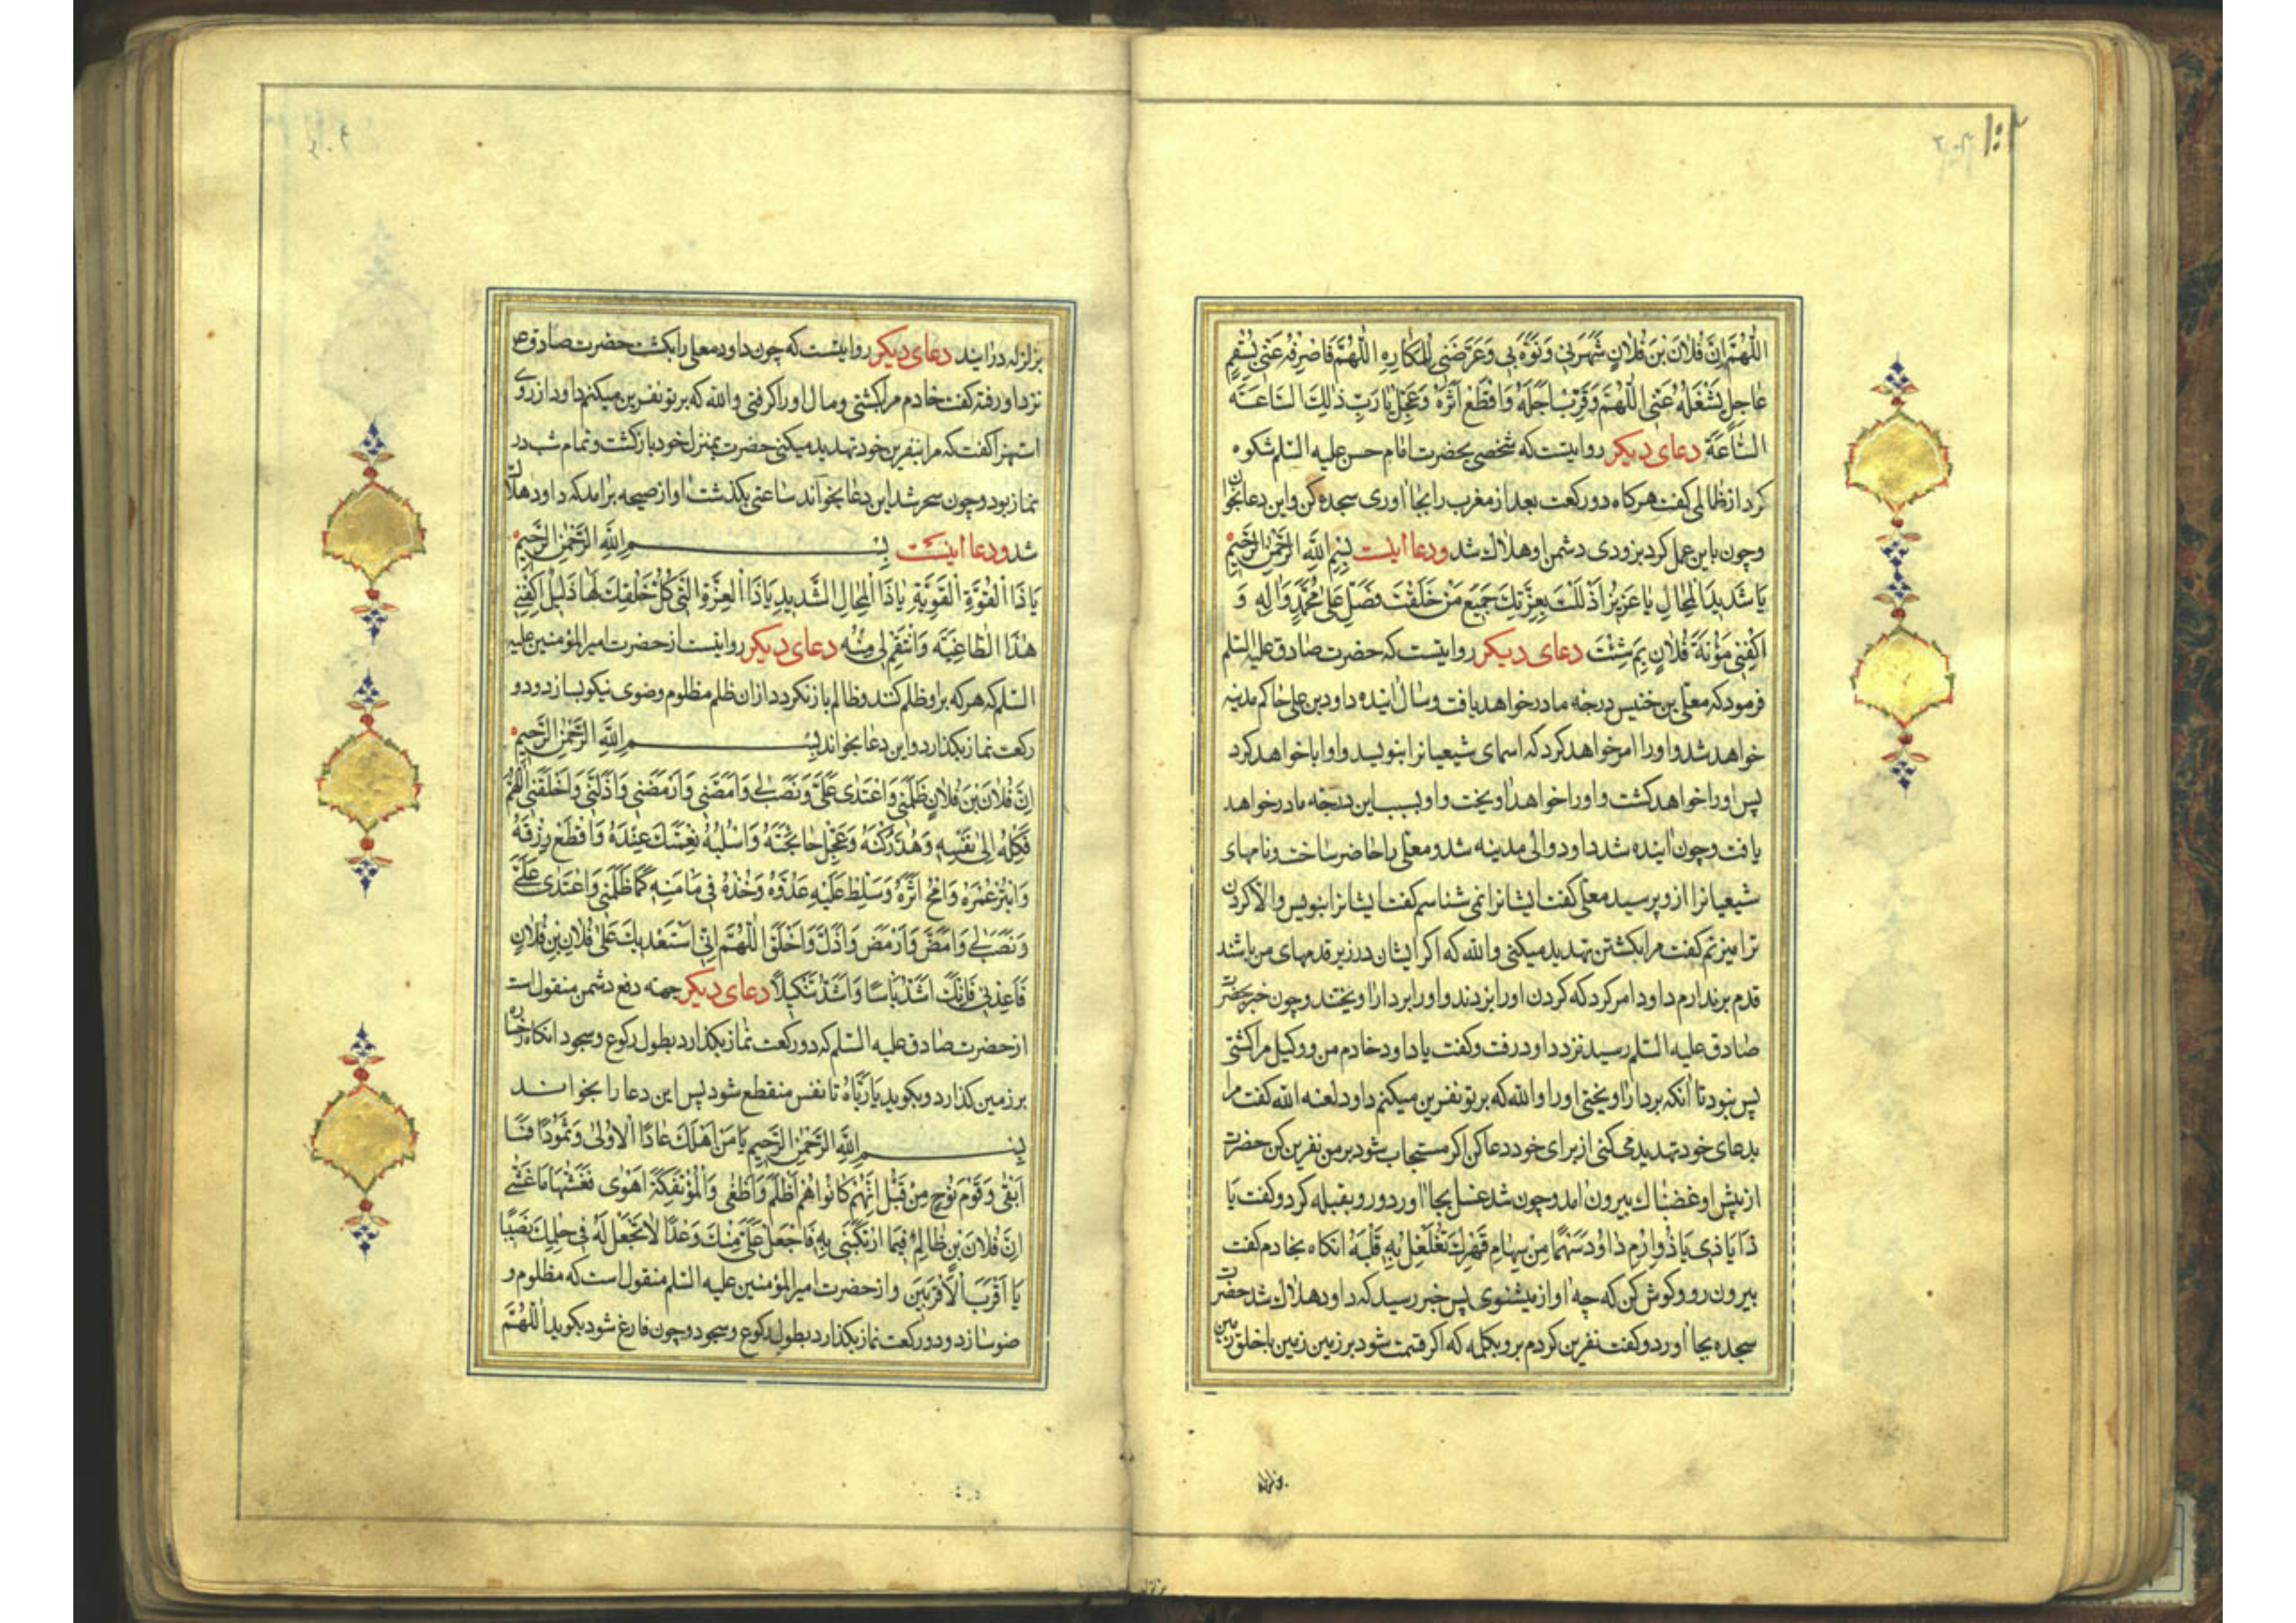 اللَّهُمَّ إِنَّ فُلَانَ بْنَ فُلَانٍ شَهَرَنِي وَنَوَّهَ بِي وَعَرَّضَنِي لِلْمَكَارِهِ اللَّهُمَّ فَاصْرِفْهُ عَنِّي بِسُقْمٍ
عَاجِلٍ يَشْغَلُهُ عَنِّي اللَّهُمَّ وَقَرِّبْ اَجَلَهُ وَاقْطَعْ اَثَرَهُ وَعَجِّلْ يَا رَبِّ ذٰلِكَ السَّاعَةَ
السَّاعَةَ دعای دیکر روایتست که شخصی بحضرت امام حسن علیه السلم شکوه
کرد از ظالمی کفت هرکاه دو رکعت بعد از مغرب را بجا اوری سجده کن و این دعا بخوان
و چون باین عمل کرد بزودی دشمن او هلاک شد و دعا اینست بِسْمِ اللَّهِ الرَّحْمٰنِ الرَّحِيمِ
يَا شَدِيدَ الْمِحَالِ يَا عَزِيزُ اَذْلَلْتَ بِعِزَّتِكَ جَمِيعَ مَنْ خَلَقْتَ فَصَلِّ عَلٰى مُحَمَّدٍ وَاٰلِهِ وَ
اكْفِنِي مَؤُنَةَ فُلَانٍ بِمَ شِئْتَ دعای دیکر روایتست که حضرت صادق علیه السلم
فرمود که معلی بن خنیس درجه ما در خواهد یافت و سال اینده داود بن علی حاکم مدینه
خواهد شد و او را امر خواهد کرد که اسمای شیعیانرا بنویسد و او ابا خواهد کرد
پس او را خواهد کشت و او را خواهد اویخت و او بسبب این درجه ما در خواهد
یافت و چون اینده شد داود والی مدینه شد و معلی را حاضر ساخت و نامهای
شیعیانرا ازو پرسید معلی کفت ایشانرا نمی شناسم کفت ایشانرا بنویس والا کردن
ترا میزنم کفت مرا بکشتن تهدید میکنی والله که اکر ایشان در زیر قدمهای من باشند
قدم برندارم داود امر کرد که کردن او را بزدند و او را بردار اویختند و چون خبر بحضرت
صادق علیه السلم رسید نزد داود رفت و کفت یا داود خادم من و وکیل مرا کشتی
پس نبود تا انکه بردار اویختی او را والله که بر تو نفرین میکنم داود لعنه الله کفت مرا
بدعای خود تهدید می کنی از برای خود دعا کن اکر مستجاب شود بر من نفرین کن حضرت
از پیش او غضبناک بیرون امد و چون شد غسل بجا اورد و رو بقبله کرد و کفت یا
ذَا يَا ذِي يَا ذُو اِرْمِ دَاوُدَ سَهْمًا مِنْ سِهَامِ قَهْرِكَ تُقَلْقِلُ بِهِ قَلْبَهُ انکاه بخادم کفت
بیرون رو و کوش کن که چه اواز میشنوی پس خبر رسید که داود هلاک شد حضرت
سجده بجا اورد و کفت نفرین کردم برو بکلمه که اکر قسمت شود بر زمین زمین با خلق زمین
بزلزله درایند دعای دیکر روایتست که چون داود معلی را بکشت حضرت صادق ع
نزد او رفته کفت خادم مرا کشتی و مال او را کرفتی والله که بر تو نفرین میکنم داود از روی
استهزا کفت که مرا بنفرین خود تهدید میکنی حضرت بمنزل خود بازکشت و تمام شب در
نماز بود و چون سحر شد این دعا بخواند ساعتی بکذشت اواز صیحه برامد که داود هلاک
شد و دعا اینست بِسْمِ اللَّهِ الرَّحْمٰنِ الرَّحِيمِ
يَا ذَا الْقُوَّةِ الْقَوِيَّةِ يَا ذَا الْمِحَالِ الشَّدِيدِ يَا ذَا الْعِزَّةِ الَّتِي كُلُّ خَلْقِكَ لَهَا ذَلِيلٌ اكْفِنِي
هٰذَا الطَّاغِيَةَ وَانْتَقِمْ لِي مِنْهُ دعای دیکر روایتست از حضرت امیرالمؤمنین علیه
السلم که هر که برو ظلم کنند و ظالم باز نکردد از ان ظلم مظلوم وضوی نیکو بسازد و دو
رکعت نماز بکذارد و این دعا بخواند بِسْمِ اللَّهِ الرَّحْمٰنِ الرَّحِيمِ
اِنَّ فُلَانَ بْنَ فُلَانٍ ظَلَمَنِي وَاعْتَدٰى عَلَيَّ وَنَصَبَ لِي وَاَمَضَّنِي وَاَرْمَضَنِي وَاَذَلَّنِي وَاَخْلَقَنِي اللَّهُمَّ
فَكِلْهُ اِلٰى نَفْسِهِ وَهُدَّ رُكْنَهُ وَعَجِّلْ جَائِحَتَهُ وَاسْلُبْهُ نِعْمَتَكَ عِنْدَهُ وَاقْطَعْ رِزْقَهُ
وَابْتُرْ عُمْرَهُ وَامْحُ اَثَرَهُ وَسَلِّطْ عَلَيْهِ عَدُوَّهُ وَخُذْهُ فِي مَأْمَنِهِ كَمَا ظَلَمَنِي وَاعْتَدٰى عَلَيَّ
وَنَصَبَ لِي وَاَمَضَّ وَاَرْمَضَ وَاَذَلَّ وَاَخْلَقَ اللَّهُمَّ اِنِّي اَسْتَعِيذُ بِكَ عَلٰى فُلَانِ بْنِ فُلَانٍ
فَاَعِذْنِي فَاِنَّكَ اَشَدُّ بَأْسًا وَاَشَدُّ تَنْكِيلًا دعای دیکر جهته دفع دشمن منقول است
از حضرت صادق علیه السلم که دو رکعت نماز بکذارد بطول رکوع و سجود انکاه رخساره
بر زمین کذارد و بکوید یَا رَبَّاهُ تا نفس منقطع شود پس این دعا را بخواند
بِسْمِ اللَّهِ الرَّحْمٰنِ الرَّحِيمِ يَا مَنْ اَهْلَكَ عَادًا الْاُولٰى وَثَمُودًا فَمَا
اَبْقٰى وَقَوْمَ نُوحٍ مِنْ قَبْلُ اِنَّهُمْ كَانُوا هُمْ اَظْلَمَ وَاَطْغٰى وَالْمُؤْتَفِكَةَ اَهْوٰى فَغَشّٰيهَا مَا غَشّٰى
اِنَّ فُلَانَ بْنَ ظَالِمٌ فِيمَا ارْتَكَبَنِي بِهِ فَاجْعَلْ عَلَيَّ مِنْكَ وَعْدًا لَا تَجْعَلْ لَهُ فِي حِلْمِكَ نَصِيبًا
يَا اَقْرَبَ الْاَقْرَبِينَ و از حضرت امیرالمؤمنین علیه السلم منقول است که مظلوم و
ضو سازد و دو رکعت نماز بکذارد بطول رکوع و سجود و چون فارغ شود بکوید اَللَّهُمَّ